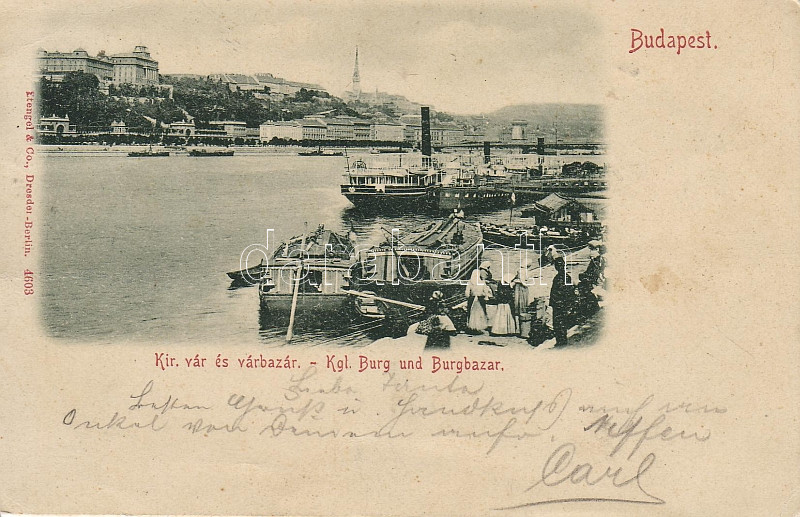 Budapest.
Etengel & Co., Dresden-Berlin. 4603
darabanth
Kir. vár és várbazár. - Kgl. Burg und Burgbazar.
Liebe Tante
Besten Gruß u. Handkuss auch an
Onkel von Deinem Neffen
Carl